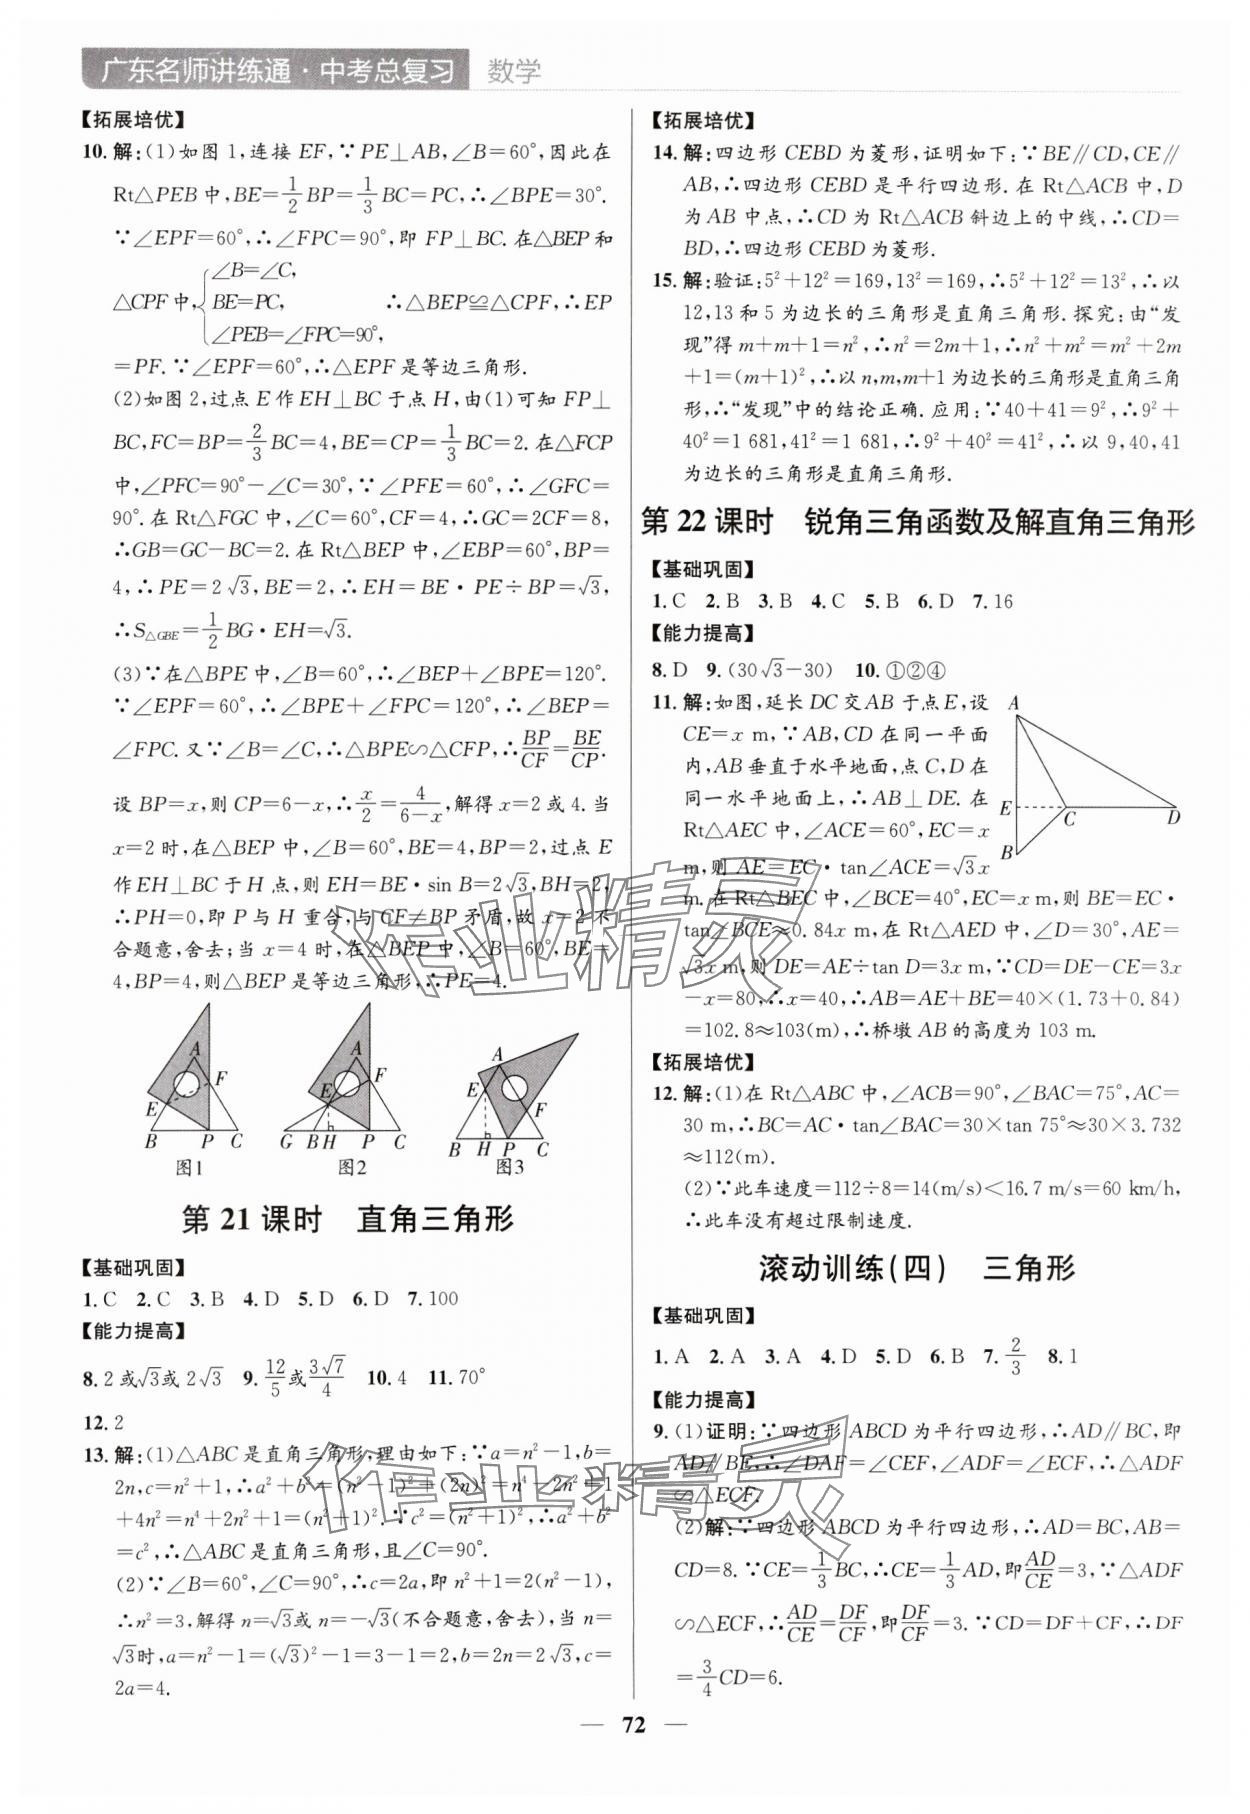 广东名师讲练通·中考总复习 数学
【拓展培优】
10. 解:(1)如图1,连接EF,∵PE⊥AB,∠B=60°,因此在
Rt△PEB中,BE=1/2BP=1/3BC=PC,∴∠BPE=30°.
∵∠EPF=60°,∴∠FPC=90°,即FP⊥BC.在△BEP和
△CPF中,{∠B=∠C, BE=PC, ∠PEB=∠FPC=90°, ∴△BEP≌△CPF,∴EP
=PF.∵∠EPF=60°,∴△EPF是等边三角形.
(2)如图2,过点E作EH⊥BC于点H,由(1)可知FP⊥
BC,FC=BP=2/3BC=4,BE=CP=1/3BC=2.在△FCP
中,∠PFC=90°-∠C=30°,∵∠PFE=60°,∴∠GFC=
90°.在Rt△FGC中,∠C=60°,CF=4,∴GC=2CF=8,
∴GB=GC-BC=2.在Rt△BEP中,∠EBP=60°,BP=
4,∴PE=2√3,BE=2,∴EH=BE·PE÷BP=√3,
∴S△GBE=1/2BG·EH=√3.
(3)∵在△BPE中,∠B=60°,∴∠BEP+∠BPE=120°.
∵∠EPF=60°,∴∠BPE+∠FPC=120°,∴∠BEP=
∠FPC.又∵∠B=∠C,∴△BPE∽△CFP,∴BP/CF=BE/CP.
设BP=x,则CP=6-x,∴x/2=4/(6-x),解得x=2或4.当
x=2时,在△BEP中,∠B=60°,BE=4,BP=2,过点E
作EH⊥BC于H点,则EH=BE·sin B=2√3,BH=2,
∴PH=0,即P与H重合,与CF≠BP矛盾,故x=2不
合题意,舍去;当x=4时,在△BEP中,∠B=60°,BE=
4,BP=4,则△BEP是等边三角形,∴PE=4.
A E F B P C
图1
A E F G B H P C
图2
A E F B H P C
图3
第21课时 直角三角形
【基础巩固】
1.C 2.C 3.B 4.D 5.D 6.D 7.100
【能力提高】
8.2或√3或2√3 9.12/5或3√7/4 10.4 11.70°
12.2
13. 解:(1)△ABC是直角三角形,理由如下:∵a=n²-1,b=
2n,c=n²+1,∴a²+b²=(n²-1)²+(2n)²=n⁴-2n²+1
+4n²=n⁴+2n²+1=(n²+1)².∵c²=(n²+1)²,∴a²+b²
=c²,∴△ABC是直角三角形,且∠C=90°.
(2)∵∠B=60°,∠C=90°,∴c=2a,即n²+1=2(n²-1),
∴n²=3,解得n=√3或n=-√3(不合题意,舍去),当n=
√3时,a=n²-1=(√3)²-1=3-1=2,b=2n=2√3,c=
2a=4.
【拓展培优】
14. 解:四边形CEBD为菱形,证明如下:∵BE∥CD,CE∥
AB,∴四边形CEBD是平行四边形.在Rt△ACB中,D
为AB中点,∴CD为Rt△ACB斜边上的中线,∴CD=
BD,∴四边形CEBD为菱形.
15. 解:验证:5²+12²=169,13²=169,∴5²+12²=13²,∴以
12,13和5为边长的三角形是直角三角形.探究:由“发
现”得m+m+1=n²,∴n²=2m+1,∴n²+m²=m²+2m
+1=(m+1)²,∴以n,m,m+1为边长的三角形是直角三角
形,∴“发现”中的结论正确.应用:∵40+41=9²,∴9²+
40²=1 681,41²=1 681,∴9²+40²=41²,∴以9,40,41
为边长的三角形是直角三角形.
第22课时 锐角三角函数及解直角三角形
【基础巩固】
1.C 2.B 3.B 4.C 5.B 6.D 7.16
【能力提高】
8.D 9.(30√3-30) 10.①②④
11. 解:如图,延长DC交AB于点E,设
CE=x m,∵AB,CD在同一平面
内,AB垂直于水平地面,点C,D在
同一水平地面上,∴AB⊥DE.在
Rt△AEC中,∠ACE=60°,EC=x
m,则AE=EC·tan∠ACE=√3x
m.在Rt△BEC中,∠BCE=40°,EC=x m,则BE=EC·
tan∠BCE≈0.84x m,在Rt△AED中,∠D=30°,AE=
√3x m,则DE=AE÷tan D=3x m,∵CD=DE-CE=3x
-x=80,∴x=40,∴AB=AE+BE=40×(1.73+0.84)
=102.8≈103(m),∴桥墩AB的高度为103 m.
A E C D B
【拓展培优】
12. 解:(1)在Rt△ABC中,∠ACB=90°,∠BAC=75°,AC=
30 m,∴BC=AC·tan∠BAC=30×tan 75°≈30×3.732
≈112(m).
(2)∵此车速度=112÷8=14(m/s)<16.7 m/s=60 km/h,
∴此车没有超过限制速度.
滚动训练(四) 三角形
【基础巩固】
1.A 2.A 3.A 4.D 5.D 6.B 7.2/3 8.1
【能力提高】
9.(1)证明:∵四边形ABCD为平行四边形,∴AD∥BC,即
AD∥BE,∴∠DAF=∠CEF,∠ADF=∠ECF,∴△ADF
∽△ECF.
(2)解:∵四边形ABCD为平行四边形,∴AD=BC,AB=
CD=8.∵CE=1/3BC,∴CE=1/3AD,即AD/CE=3,∵△ADF
∽△ECF,∴AD/CE=DF/CF,即DF/CF=3.∵CD=DF+CF,∴DF
=3/4CD=6.
— 72 —
作业精灵
作业精灵